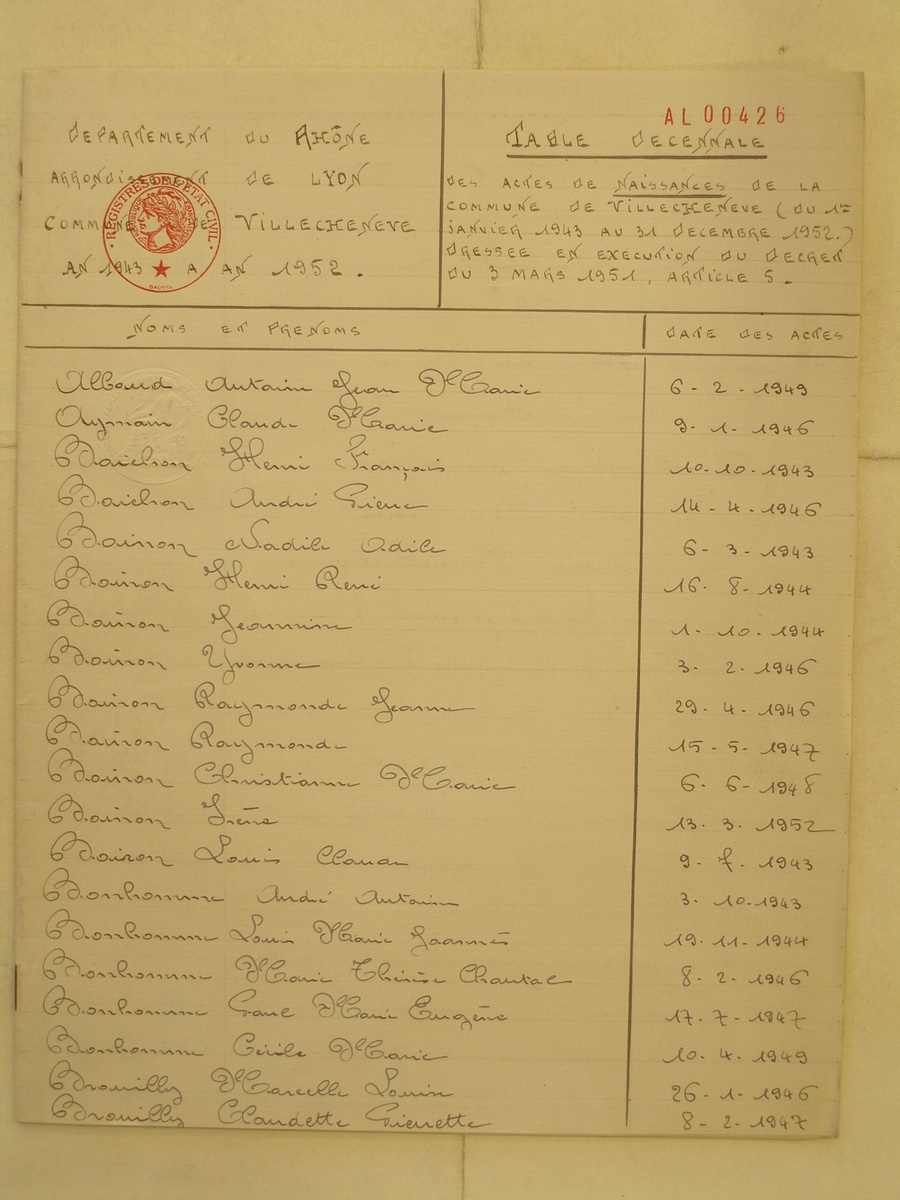 AL00426
DEPARTEMENT DU RHÔNE
ARRONDISSEMENT DE LYON
COMMUNE DE VILLECHENEVE
AN 1943 A AN 1952.
REGISTRES DE L'ETAT CIVIL
TABLE DECENNALE
DES ACTES DE NAISSANCES DE LA
COMMUNE DE VILLECHENEVE (DU 1er
JANVIER 1943 AU 31 DECEMBRE 1952.)
DRESSEE EN EXECUTION DU DECRET
DU 3 MARS 1951, ARTICLE 5.
NOMS ET PRENOMS DATE DES ACTES
Antoine Jean Marie 6-2-1949
Claude Marie 9-1-1946
Henri François 10-10-1943
André Pierre 14-4-1946
Odile 6-3-1943
Henri René 16-8-1944
Jeannine 1-10-1944
Yvonne 3-2-1946
Raymonde Jeanne 29-4-1946
Raymonde 15-5-1947
Christianne Marie 6-6-1948
Irène 13-3-1952
Louis Claude 9-7-1943
Bonhomme André Antoine 3-10-1943
Bonhomme Louis Marie Joannès 19-11-1944
Bonhomme Marie Thérèse Chantal 8-2-1946
Bonhomme Paul Marie Eugène 17-7-1947
Bonhomme Cécile Marie 10-4-1949
Brouilly Marcelle Louise 26-1-1946
Brouilly Claudette Pierrette 8-2-1947